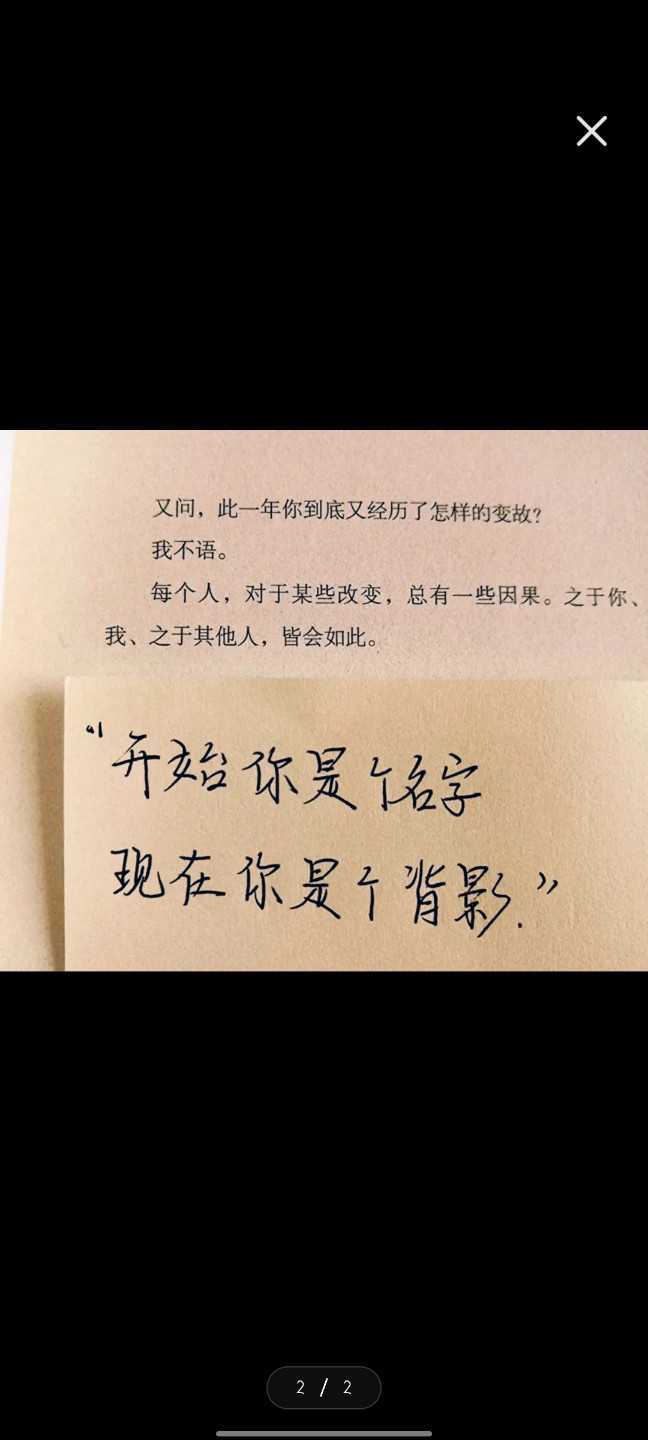 又问，此一年你到底又经历了怎样的变故？
我不语。
每个人，对于某些改变，总有一些因果。之于你、
我、之于其他人，皆会如此。
“开始你是个名字
现在你是个背影.”
2 / 2